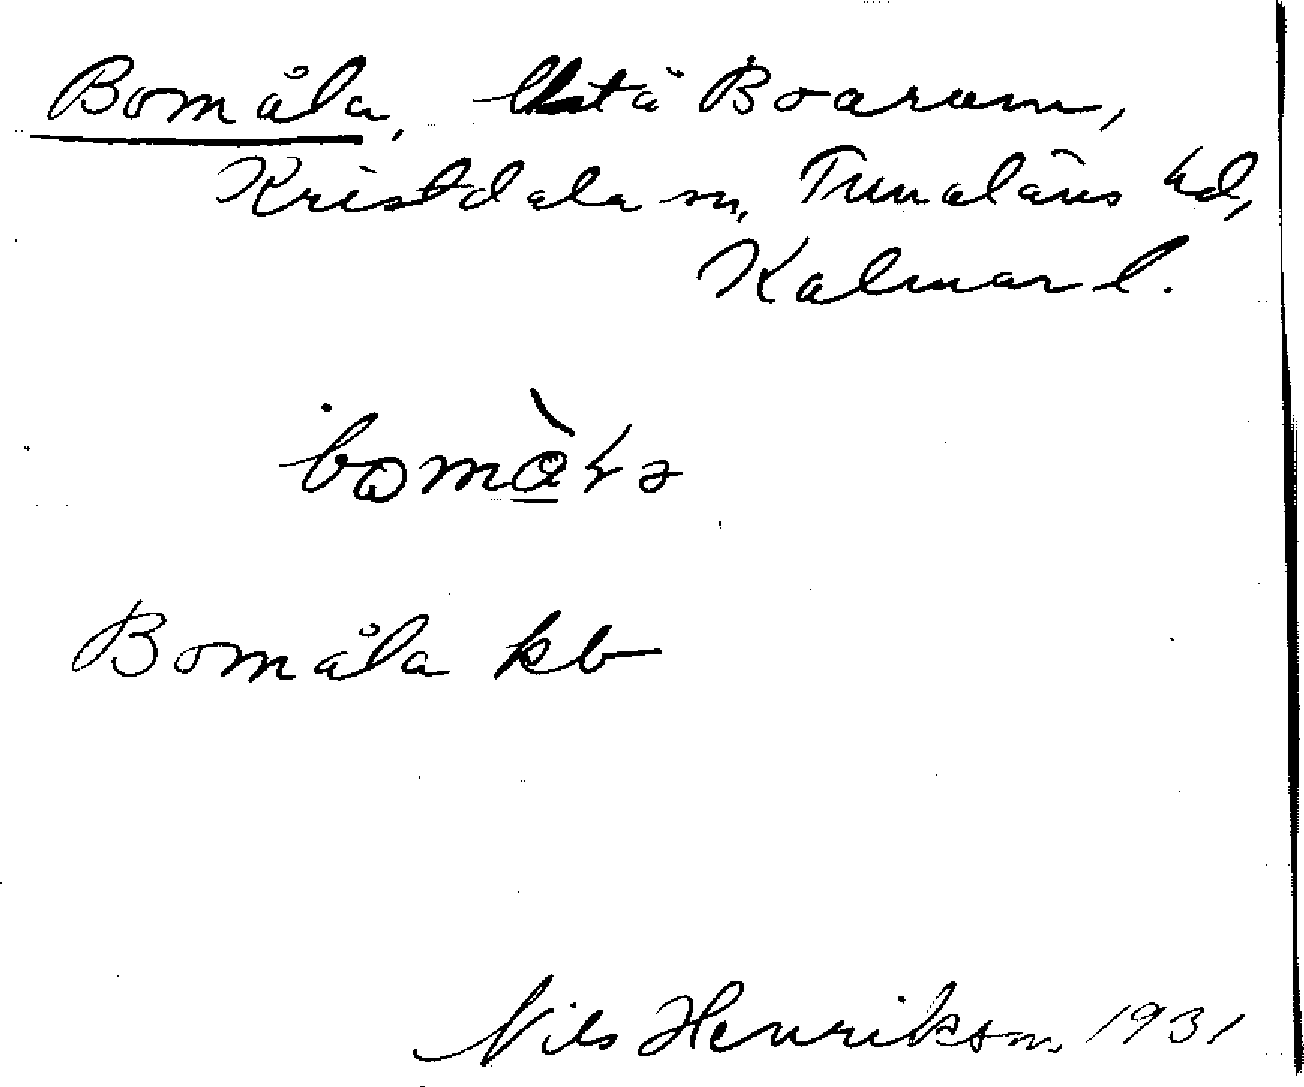 Bomåla, lht å Boarum,
Kristdala sn, Tunaläns hd,
Kalmar l.
bomås
Bomåla kb
Nils Henrikson 1931